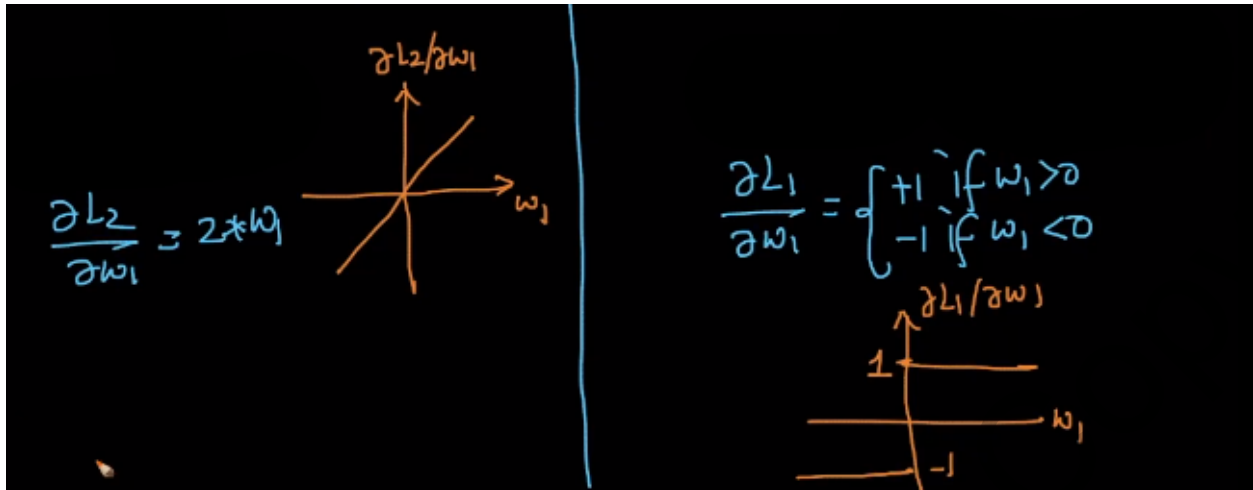 ∂L2/∂w1
w1
∂L2/∂w1 = 2*w1
∂L1/∂w1 = { +1 if w1>0
-1 if w1<0
∂L1/∂w1
1
w1
-1